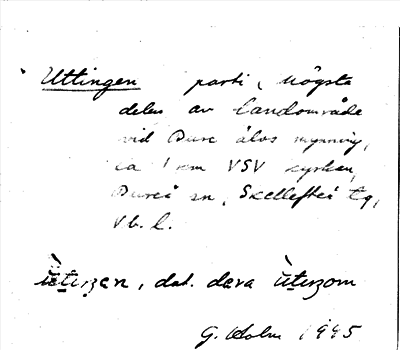 Uttingen parti, högsta
delen av landområde
vid Bure älvs mynning,
ca 1 km VSV kyrkan,
Bureå sn, Skellefteå tg,
Vb. l.
dat. dera
G. Holm 1945